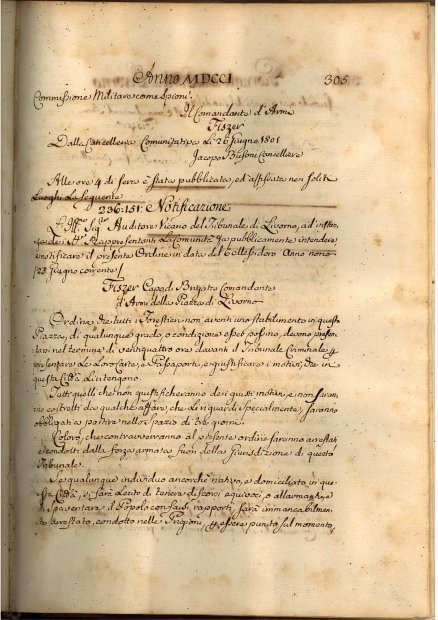 Anno MDCCI 305
Commissione Militare come Spioni.
Il Comandante d'Armi
Fiszer
Dalla Cancelleria Comunitativa Li 26 Giugno 1801
Jacopo Busoni Cancelliere
Alle ore 4 di sera è stata pubblicata, ed affissata nei soliti
Luoghi La seguente
236:131: Notificazione
L'Ill.mo Sig.re Auditore Vicario del Tribunale di Livorno, ad
Rappresentanti La Comunità fa pubblicamente intendere
notificare il presente Ordine in data del Anno nono
23 Giugno corrente
Fiszer Capo di Brigata Comandante
d'Armi della Piazza di Livorno
Ordina che tutti i Forestieri non aventi uno stabilimento in questa
Piazza, di qualunque grado, o condizione essi possino, devono presen
tarsi nel termine di ventiquattro ore davanti il Tribunale Criminale p
presentare Le Loro Carte, e Passaporti, e giustificare i motivi, che in
questa Città Li ritengono.
Tutti quelli che non giustificheranno dei giusti motivi, e non saran
no costretti da qualche affare, che Li riguardi specialmente, saranno
obbligati a partire nello spazio di tre giorni.
Coloro, che contravverranno al presente ordine saranno arrestati
e condotti dalla forza armata fuori della Giurisdizione di questo
Tribunale.
Se qualunque individuo ancorchè nativo, e domiciliato in que
sta Città, si farà Lecito di tenere discorsi equivoci, o allarmanti, e
di spaventare il Popolo con falsi rapporti, sarà immancabilmen
te arrestato, condotto nelle Prigioni, essere punito sul momento,